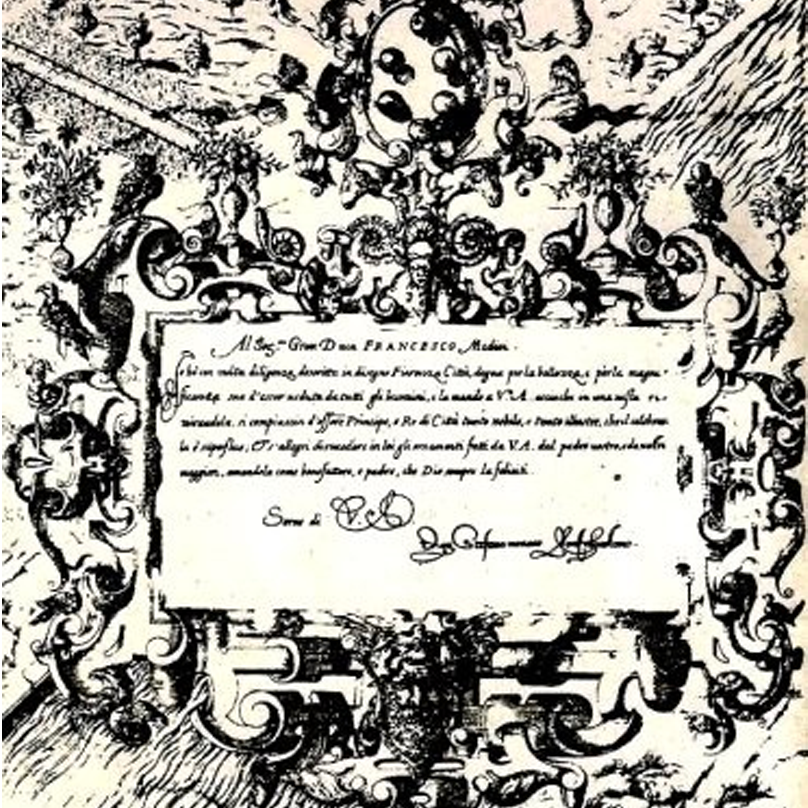 Al Seg.^mo Gran Duca FRANCESCO Medici.
Se bẽ con molta diligenza descritto in disegno Fiorenza Città, degna per la bellezza, e per la magni-
ficentia sua d'esser veduta da tutti gli huomini, e la mando a V. A. accioche in una vista ri-
mirandola, si compiaccia d'essere Principe, e Re di Città tanto nobile, e tanto illustre, che il celebrar
la è superfluo; Et s'allegri di succedere in lei gli ornamenti fatti da V.A. dal padre vostro, e da vostri
maggiori, amandola come benefattore, e padre, che Dio sempre la feliciti.
Seruo di V. A.
Don Stefano